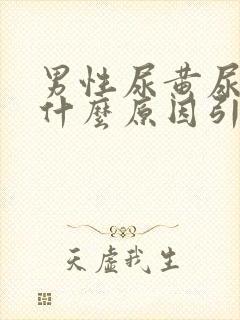 男性尿黄尿
什麼原因引
天虚我生